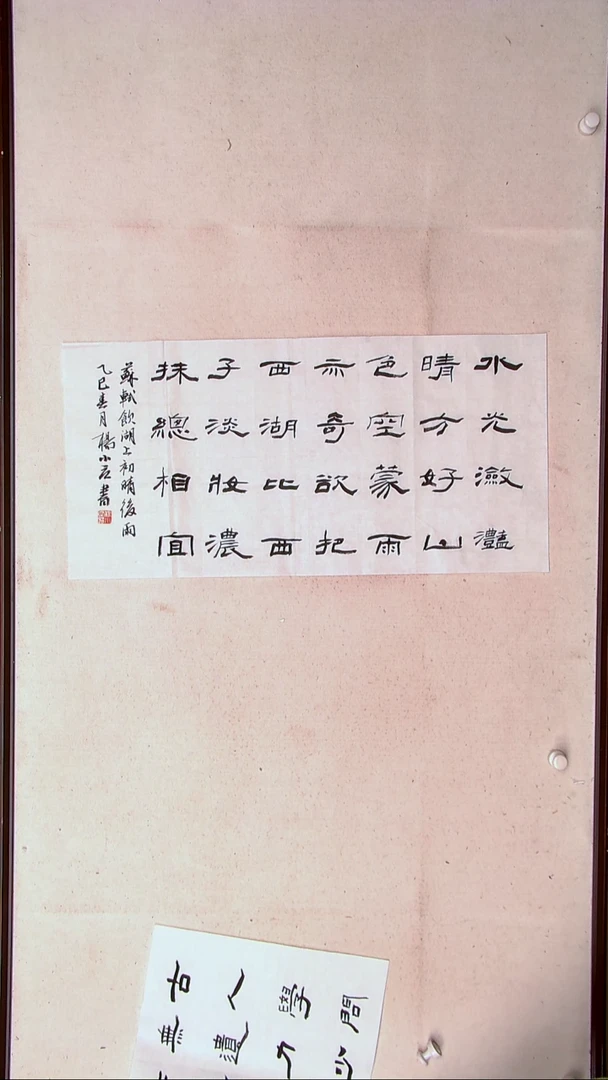 水光瀲灩
晴方好山
色空蒙雨
亦奇欲把
西湖比西
子淡妝濃
抹總相宜
蘇軾飲湖上初晴後雨
乙巳春月楊小書
古人學問
無遺力少